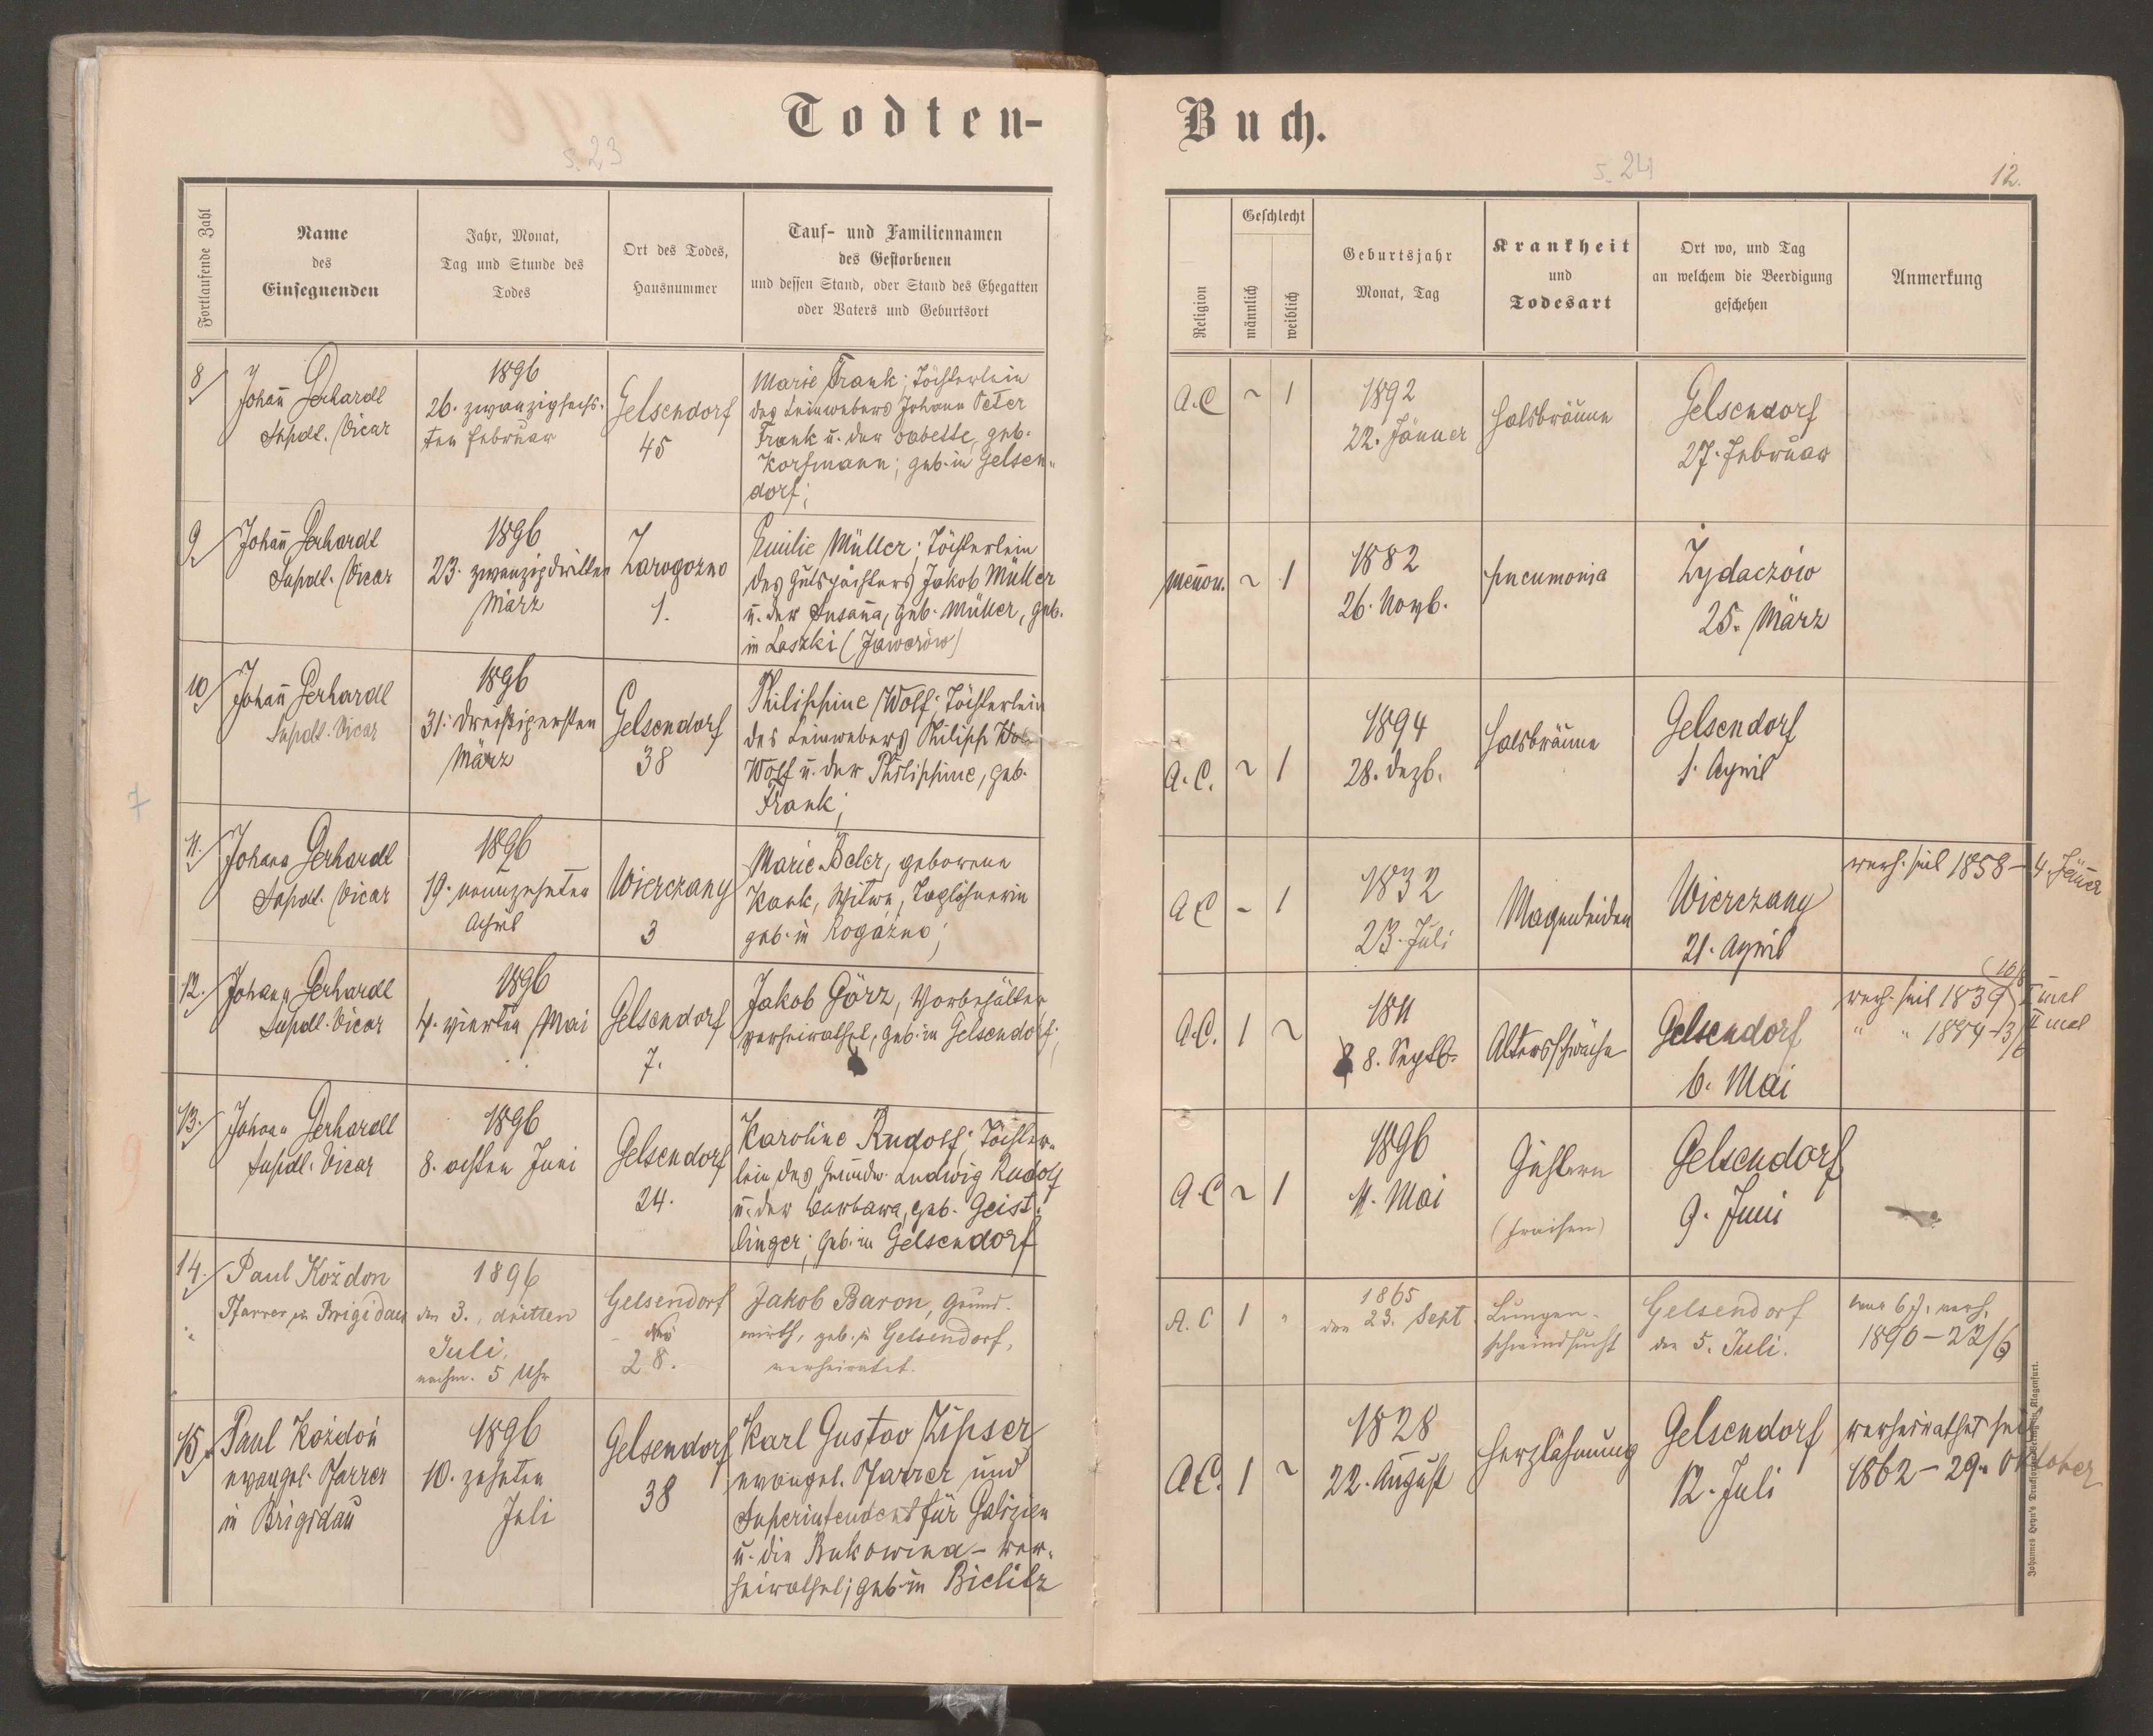 Todten-
Buch.
s. 23
s. 24
12.
Fortlaufende Zahl
Name
des
Einsegnenden
Jahr, Monat,
Tag und Stunde des
Todes
Ort des Todes,
Hausnummer
Tauf- und Familiennamen
des Gestorbenen
und dessen Stand, oder Stand des Ehegatten
oder Vaters und Geburtsort
Religion
Geschlecht
männlich
weiblich
Geburtsjahr
Monat, Tag
Krankheit
und
Todesart
Ort wo, und Tag
an welchem die Beerdigung
geschehen
Anmerkung
8/
Johañ Gerhardt
Supdt. Vicar
1896
26. zwanzigsechs-
ten Februar
Gelsendorf
45
Marie Frank; Töchterlein
des Leinwebers Johann Peter
Frank u. der Babette, geb.
Korfmann; geb. in Gelsen-
dorf;
A.C
~
1
1892
22. Jänner
Halsbräune
Gelsendorf
27. Februar
9/
Johañ Gerhardt
Supdt. Vicar
1896
23. zwanzigdritten
März
Zarogozno
1.
Emilie Müller; Töchterlein
des Gutspächters Jakob Müller
u. der Susaña, geb. Müller, geb.
in Laszki (Jaworów)
Meñon.
~
1
1882
26. Novb.
Pneumonia
Zydaczów
25. März
10/
Johañ Gerhardt
Supdt. Vicar
1896
31. dreißigersten
März
Gelsendorf
38
Philippine Wolf; Töchterlein
des Leinwebers Philipp
Wolf u. der Philippine, geb.
Frank;
A.C.
~
1
1894
28. Dezb.
Halsbräune
Gelsendorf
1. April
7
11./
Johann Gerhardt
Supdt. Vicar
1896
19. neunzehnten
April
Wierczany
3
Marie Beler, geborene
Kank, Witwe, Taglöhnerin
geb. in Rogózno;
A C
-
1
1832
23. Juli
Magenleiden
Wierczany
21. April
verh. seit 1858 - 4. Jäner
12./
Johann Gerhardt
Supdt. Vicar
1896
4. vierten Mai
Gelsendorf
7.
Jakob Görz, Vorbehälter
verheirathet, geb. in Gelsendorf;
A.C.
1
~
1811
8. Septb.
Altersschwäche
Gelsendorf
6. Mai
verh. seit 1839 I mal
" " 1844 - 3/6 II mal
13./
Johann Gerhardt
Supdt. Vicar
1896
8. achten Juni
Gelsendorf
24.
Karoline Rudolf; Töchter-
lein des Grundw. Ludwig Rudolf
u. der Barbara, geb. Geist-
linger; geb. in Gelsendorf
A.C
~
1
1896
11. Mai
Gichtern
(Fraisen)
Gelsendorf
9. Juni
9
14./
Paul Koždon
Pfarrer in Brigidau
1896
den 3., dritten
Juli,
nachm. 5 Uhr
Gelsendorf
28.
Jakob Baron, Grund-
wirth, geb. in Gelsendorf,
verheiratet.
A. C
1
"
1865
den 23. Sept.
Lungen-
schwindsucht
Gelsendorf
den 5. Juli.
war 6 J. verh.
1890 - 22/6
15./
Paul Koždoň
evangel. Pfarrer
in Brigidau
1896
10. zehnten
Juli
Gelsendorf
38
Karl Gustav Zipser
evangel. Pfarrer und
Superintendent für Galizien
u. die Bukowina - ver-
heirathet; geb. in Bielitz
A.C.
1
~
1828
22. August
Herzlähmung
Gelsendorf
12. Juli
verheirathet seit
1862 - 29. Oktober